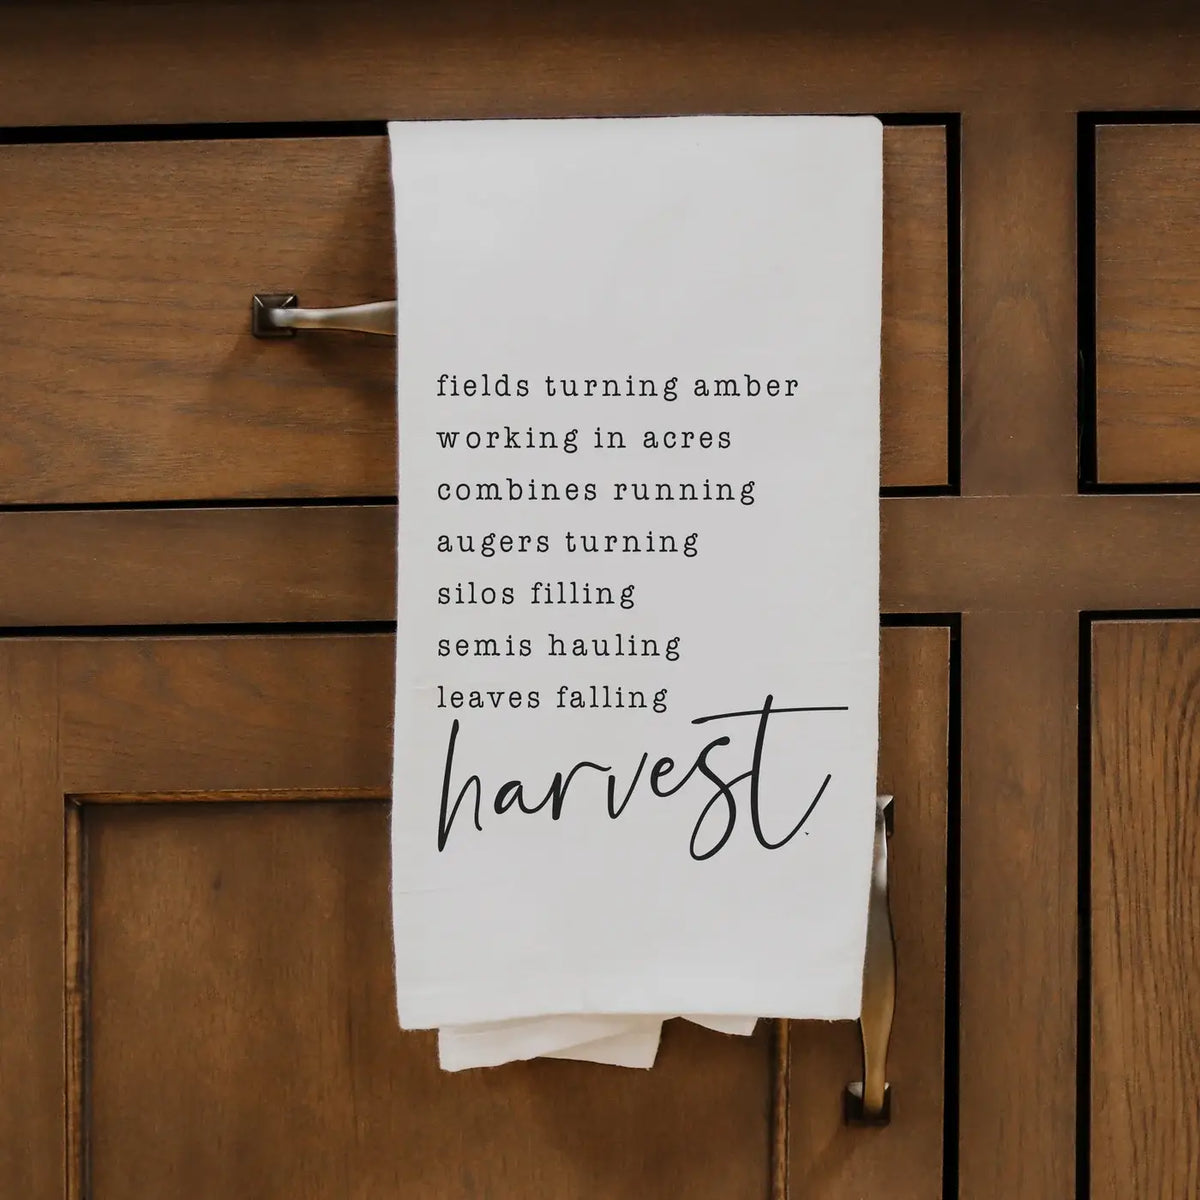 fields turning amber
working in acres
combines running
augers turning
silos filling
semis hauling
leaves falling
harvest